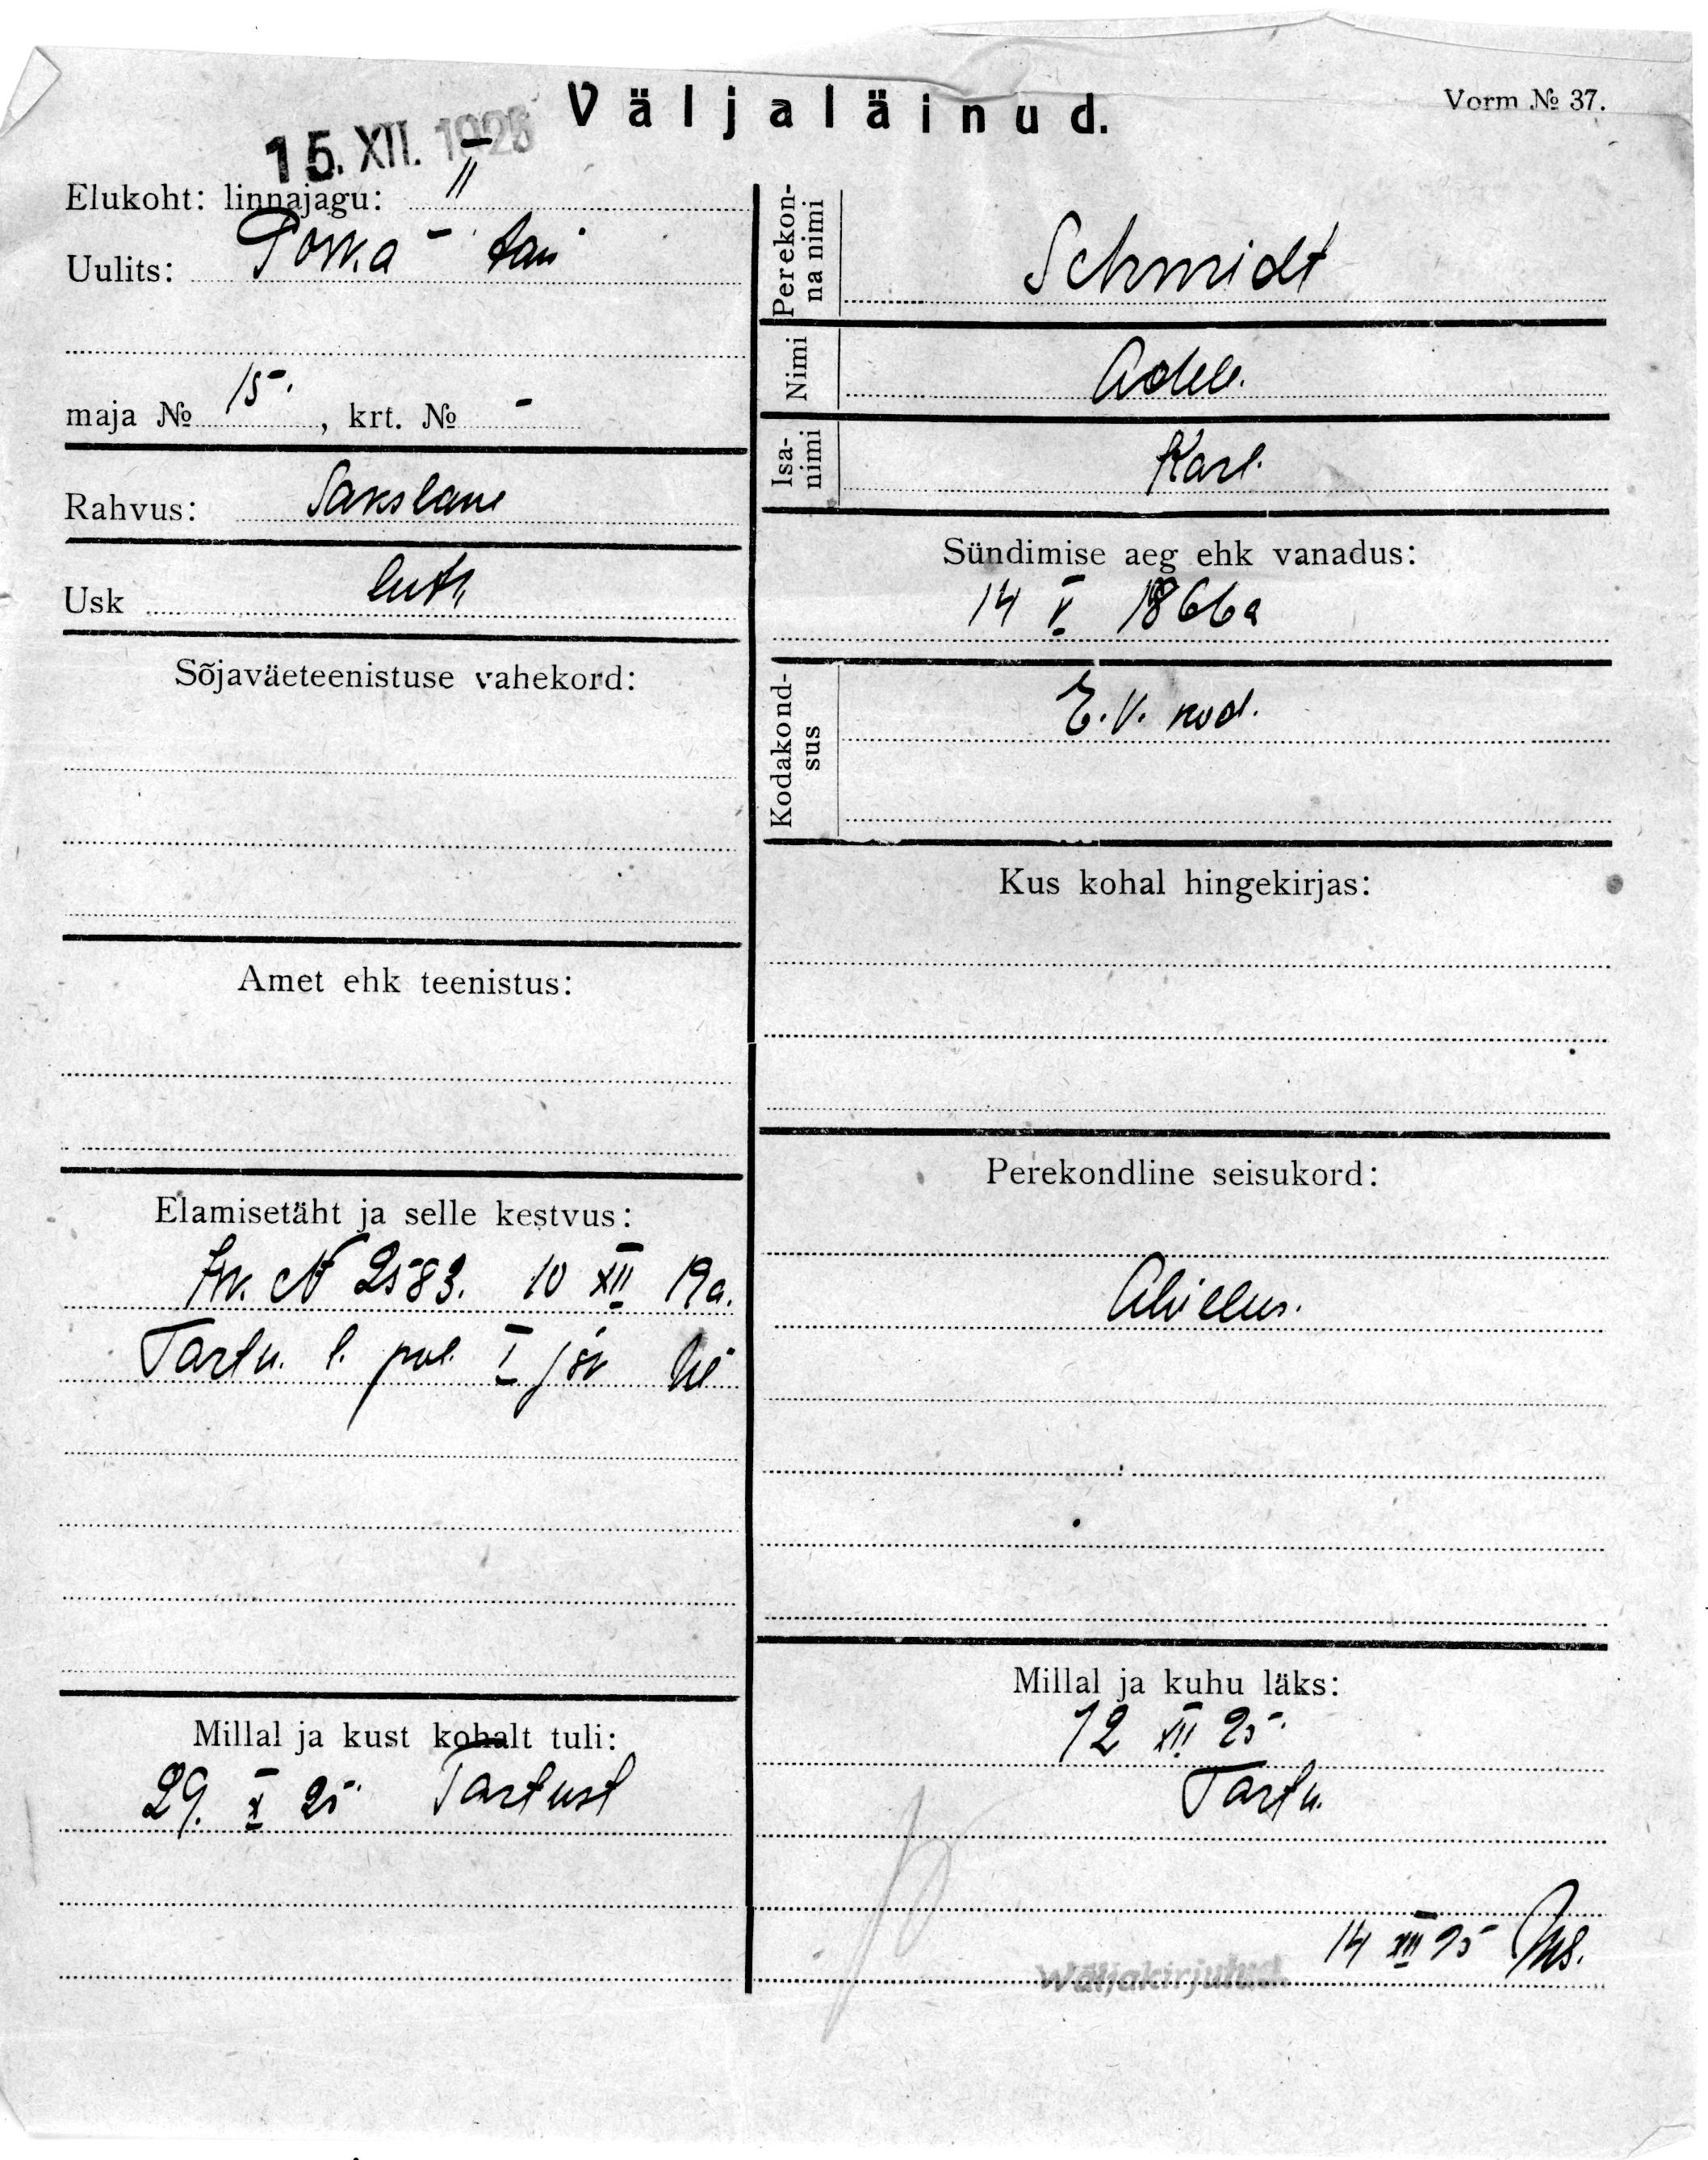 Väljaläinud.
Vorm № 37.
15. XII. 1925
Elukoht: linnajagu: II
Uulits: Poska - tän
maja № 15. , krt. № -
Rahvus: Sakslane
Usk luth,
Sõjaväeteenistuse vahekord:
Amet ehk teenistus:
Elamisetäht ja selle kestvus:
№ 2583. 10 XII 19a.
Tartu. l. pol. I jsk
Millal ja kust kohalt tuli:
29. X 25 Tartust
Perekon-
na nimi
Schmidt
Nimi
Adele.
Isa-
nimi
Karl.
Sündimise aeg ehk vanadus:
14 V 1866a
Kodakond-
sus
E.V. kod.
Kus kohal hingekirjas:
Perekondline seisukord:
Abielus.
Millal ja kuhu läks:
12 XII 25
Tartu.
14 XII 25
Wäljakirjutud.